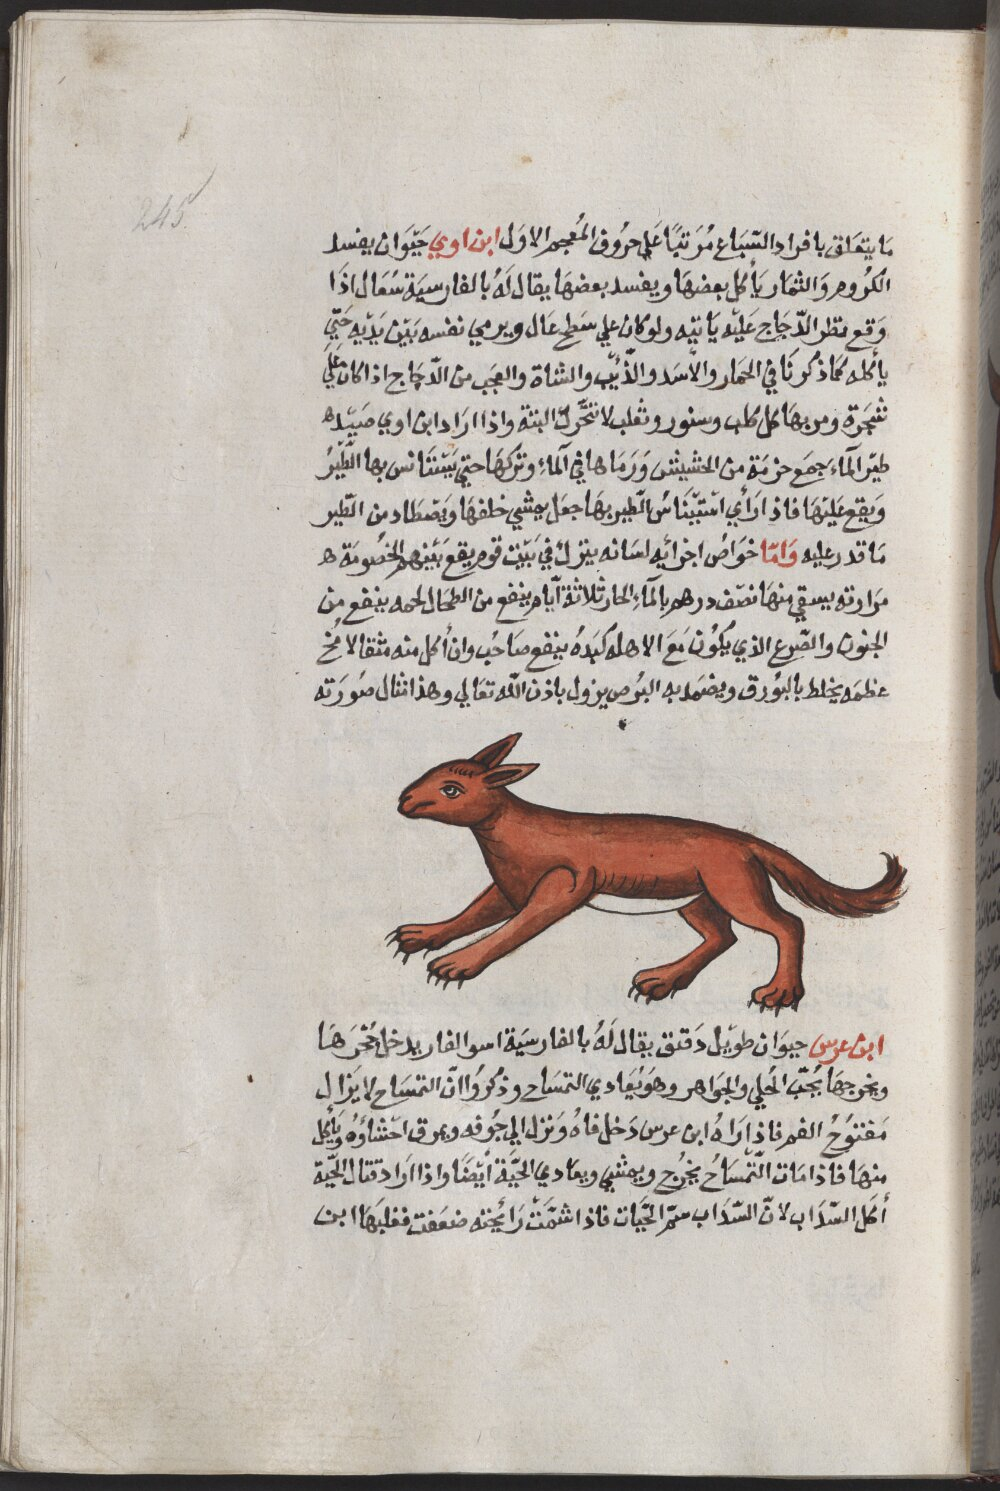 245
ما يتعلق بافراد السباع مُرَتبًا عَلى حرُوف المُعجم الاوَل ابن اوي حَيَوان يفسد
الكرُوم وَالثمار يَأكل بعضهَا ويفسد بعضهَا يقال لَهُ بالفارسيَة سُعَال اذَا
وَقع نظر الدّجَاج عَليْه يَاتيه ولو كان علي سَطح عَال ويرمي نفسه بَيْن يَدَيْه حَتّي
يأكله كمَا ذكرنَا في الحمار والأسَد والذّئب والشاة والعجب من الدّجَاج اذا كان عَلَي
شجَرة ومر بهَا كل كلب وسنور وثعلب لا تتحَّركُ البتة واذا ارَاد ابن اوي صَيْد ه
طيْر المآء جمَع حزمَة من الحشيش وَرَمَاها في المآءِ وتركهَا حتي يَسْتَانس بها الطَّيْرُ
وَيقع عَليْهَا فاذا رَأي اسْتيْنَاسُ الطير بهَا جعَل يمشي خلفهَا وَيَصْطَاد من الطّير
مَا قدر عليه وَامّا خوَاصُ اجزائِه لسَانه ينزلُ في بَيْت قوم يقع بَيْنهم الخصُومَة ه
مرَارته يسقي منهَا نصْف درهم بالمآءِ الحار ثلاثة أيّام ينفع من الطحَال لحمه ينفع من
الجنون والصّرع الذي يكُون مَعَ الاهله كَبَدهُ ينفع صَاحبُ وان أكل منه مثقالا مُخ
عظمَه يخلط بالبُورق ويضمَد به البرَص يزول باذن اللّه تعَالي وهذا مثال صُورَته
ابن عرس حيوَان طويْل دَقيق يقال لَهُ بالفارسيَة اسو الفار يدخل جُحرَهَا
ويخرجهَا يُحبّ الحُلي والجَواهر وهوَ يُعَادي التمسَاح وذكرُوا انّ التمسَاح لا يَزال
مَفتوُحُ الفم فاذا رَاهُ ابن عرس دَخل فاهُ وَنزل الي جُوفه ويمرق احْشاؤُه وَيأكل
منهَا فاذا مَات التّمْسَاحُ يَخرُج ويمشي ويعَادي الحيَّة أَيضًا واذا ارَاد قتال الحيّة
أكل السّدَاب لانّ السّدَاب سمّ الحَيَّات فاذا شمَّتْ رَائِحته ضعَفت فغلبهَا ابن